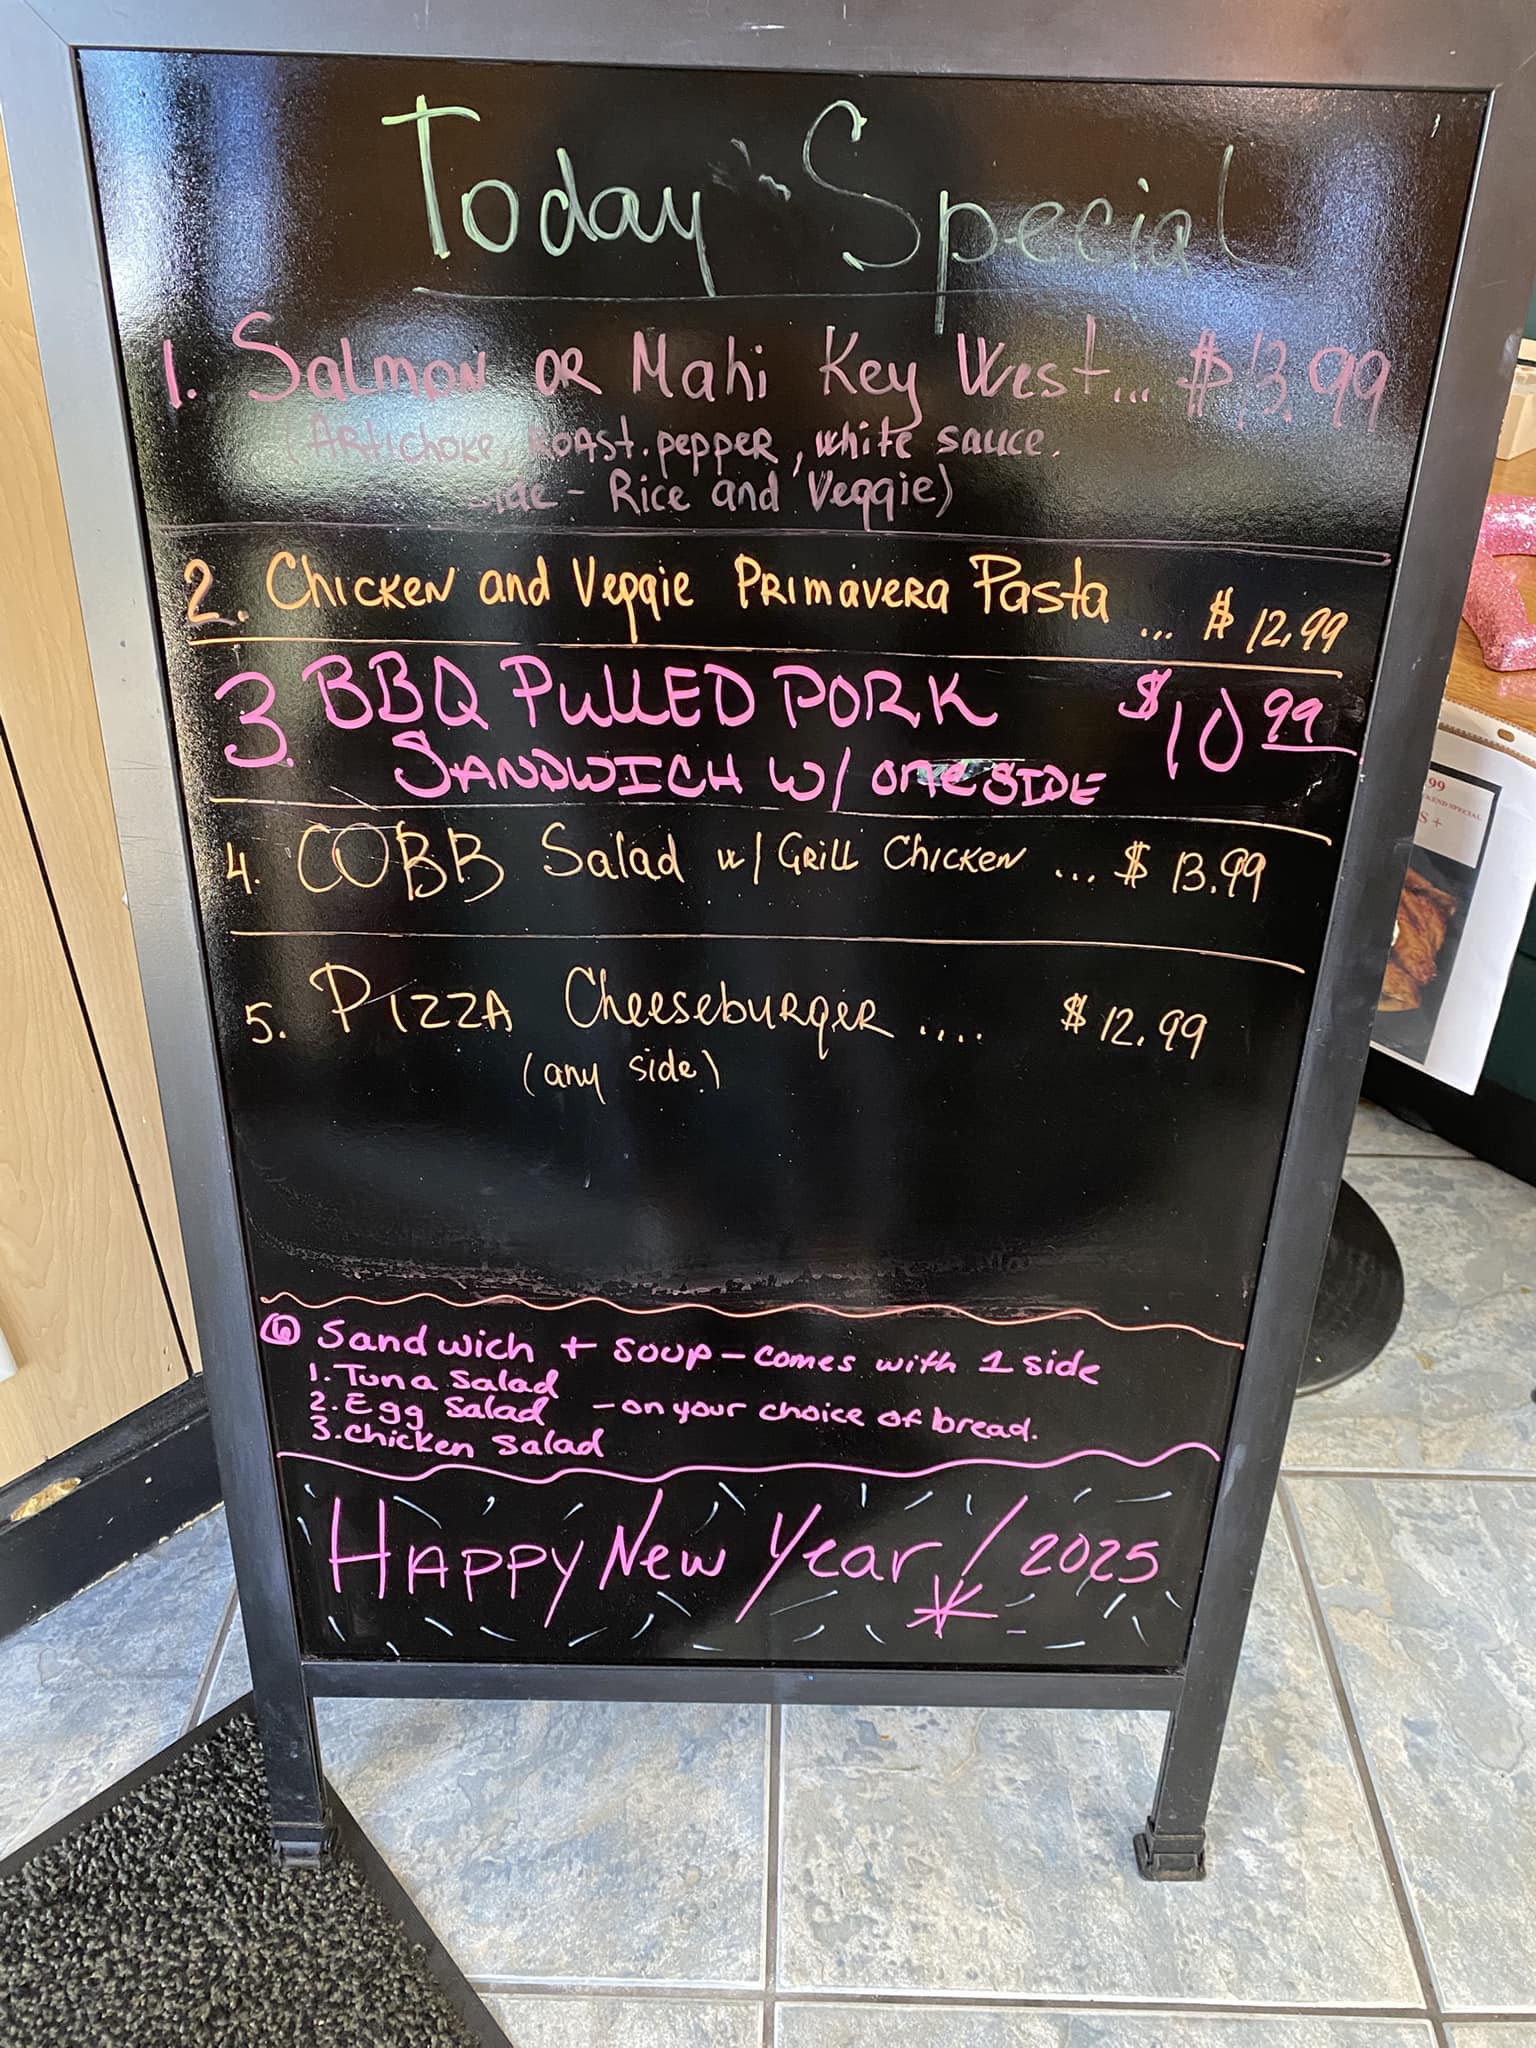 Today Special
1. Salmon OR Mahi Key West... $13.99
(Artichoke, Roast. pepper, white sauce.
side - Rice and Veggie)
2. Chicken and Veggie Primavera Pasta ... $12.99
3. BBQ PULLED PORK $10 99
SANDWICH W/ one SIDE
4. COBB Salad w/ Grill Chicken ... $13.99
5. Pizza Cheeseburger .... $12.99
(any side)
6 Sandwich + soup - comes with 1 side
1. Tuna Salad
2. Egg Salad - on your choice of bread.
3. Chicken Salad
Happy New Year / 2025
99
KEND SPECIAL
S +